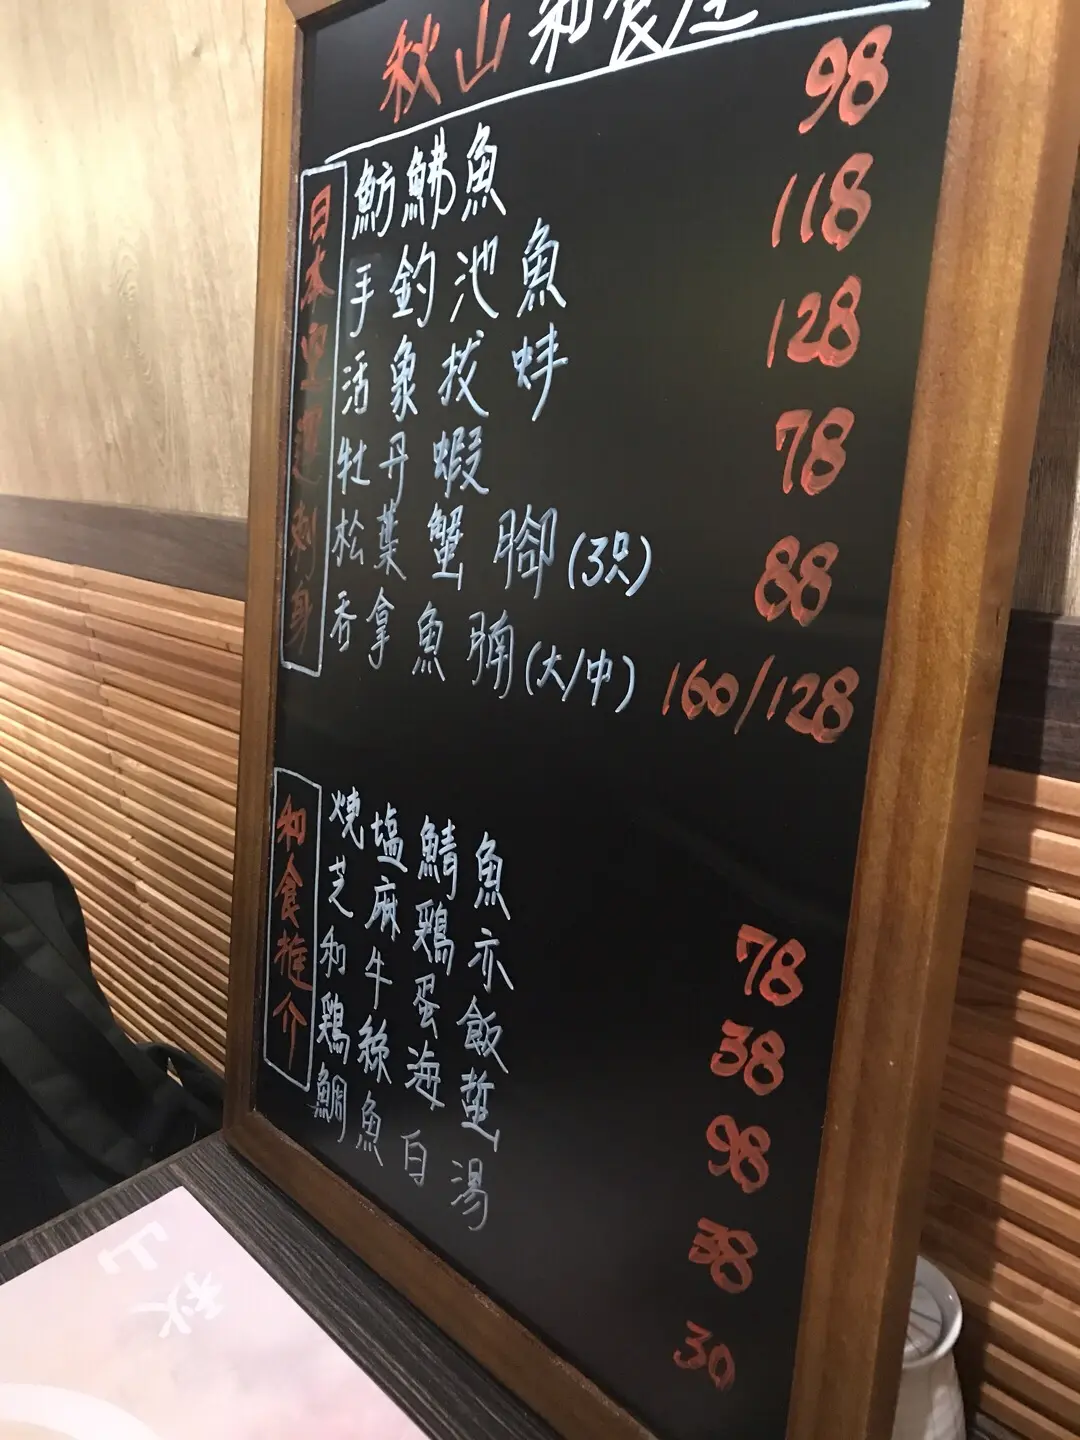 秋山和食屋
日本空運刺身
魴鮄魚 98
手釣池魚 118
活象拔蚌 128
牡丹蝦 78
松葉蟹腳(3只) 88
吞拿魚腩(大/中) 160/128
和食推介
燒塩鯖魚 78
芝麻鶏亦 38
和牛蛋飯 98
鶏絲海蜇 38
鯛魚白湯 30
秋山